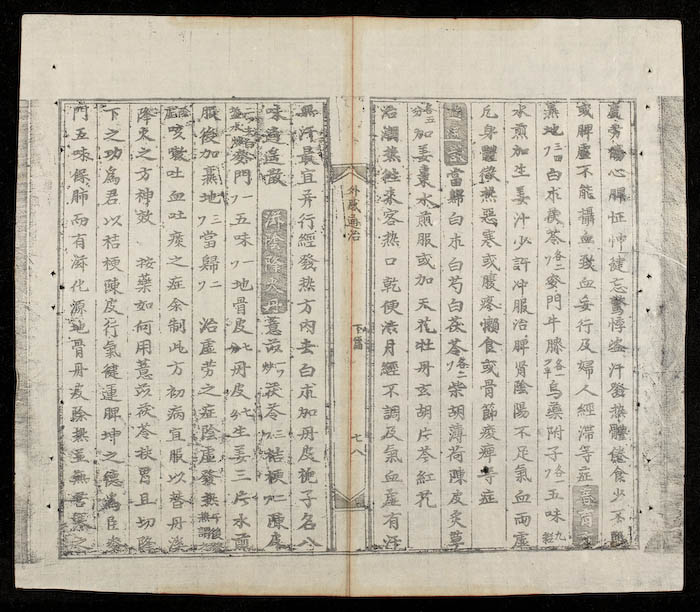 勞傷心脾怔忡健忘驚悸盜汗發熱體倦食少不眠
或脾虛不能攝血致血妄行及婦人經滯等症
熟地 白朮茯苓 各二 麥門牛膝 烏藥附子 五味
水煎加生姜汁少許冲服治脾腎陰陽不足氣血兩虛
凢身體微熱惡寒或腹疼懶食或骨節痠痺等症
當歸白朮白芍白茯苓 各二 柴胡薄荷陳皮炙草
各五分 加姜棗水煎服或加天花牡丹玄胡片芩紅花
治潮熱往來客熱口乾便澁月經不調及氣血虛有汗
外感通治
下篇
七八
無汗最宜并行經發熱方內去白朮加丹皮梔子名八
味逍遙散 薏苡 茯苓 桔梗 陳皮
麥門 五味 地骨皮 丹皮 生姜三片水煎
服後加熟地 當歸 治虛勞之症陰虛發熱
咳嗽吐血吐痰之症余制此方初病宜服以替丹溪
降火之方神效 按藥如何用薏苡茯苓扶胃且切降
下之功為君以桔梗陳皮行氣健運脾坤之德為臣麥
門五味保肺而有滋化源地骨丹皮除蒸並無苦寒之